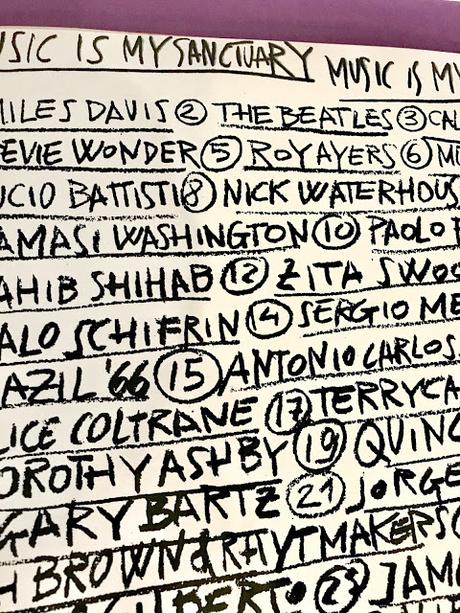 USIC IS MY SANCTUARY MUSIC IS MY
MILES DAVIS ② THE BEATLES ③ CAL
EVIE WONDER ⑤ ROY AYERS ⑥ MU
UCIO BATTISTI ⑧ NICK WATERHOUS
AMASI WASHINGTON ⑩ PAOLO F
AHIB SHIHAB ⑫ ZITA SWOO
ALO SCHIFRIN ⑭ SERGIO ME
AZIL '66 ⑮ ANTONIO CARLOS
LICE COLTRANE ⑰ TERRY CA
OROTHY ASHBY ⑲ QUINC
GARY BARTZ ㉑ JORGE
H BROWN & RHYTMAKERS
BERTO JAM